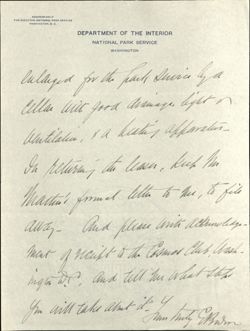 ADDRESS ONLY
THE DIRECTOR, NATIONAL PARK SERVICE
WASHINGTON, D. C.
DEPARTMENT OF THE INTERIOR
NATIONAL PARK SERVICE
WASHINGTON
enlarged for the Park Service by a
cellar with good drainage, light &
ventilation, & a heating apparatus.
In returning the lease, keep Mr
formal letter to me, to file
away. And please write acknowledg-
ment of receipt to the Cosmos Club Wash-
ington D.C. And tell me what steps
you will take about it. Yours truly